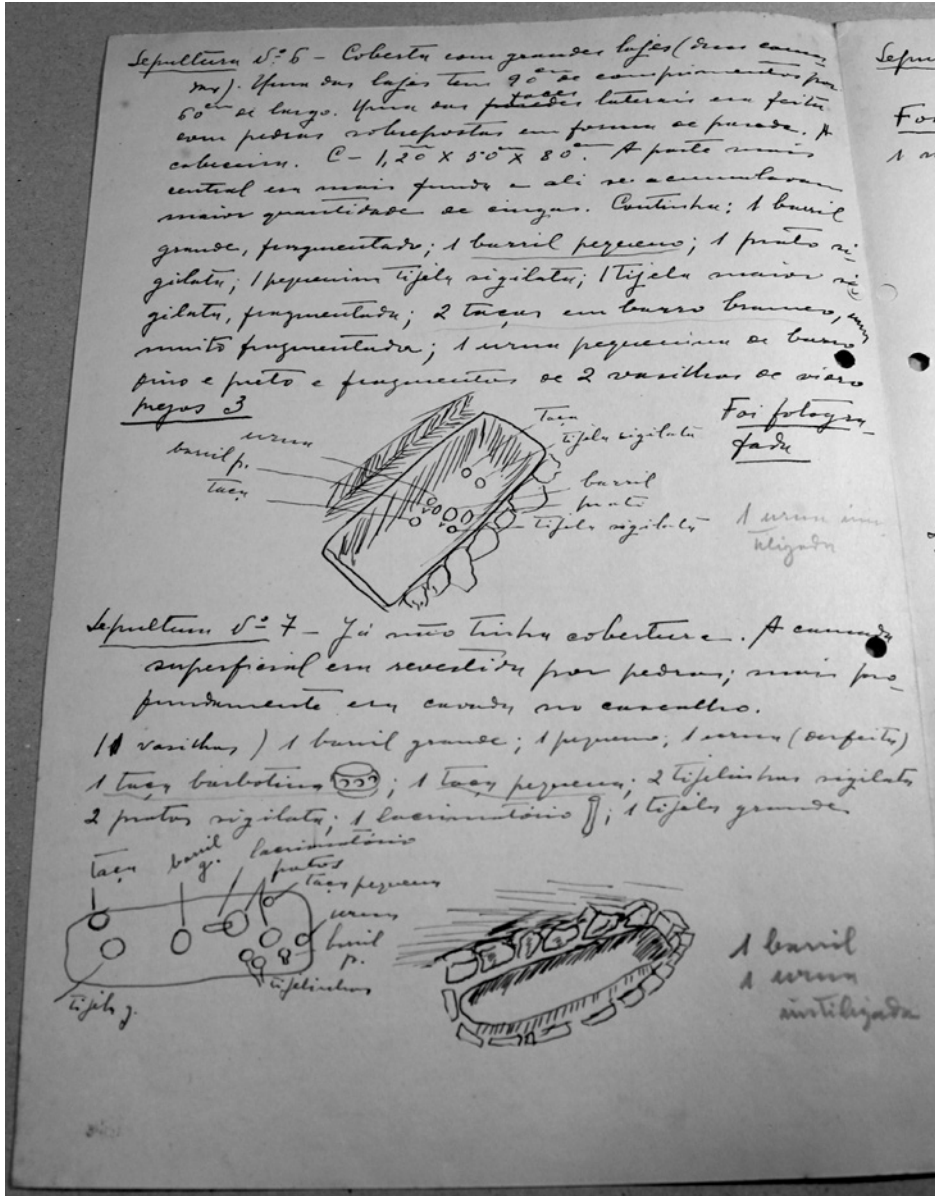 Sepultura Nº 6 – Coberta com grandes lajes (duas
Uma das lajes tem 90 cm de comprimento por
60 cm de largo. Uma das faces laterais era feita
com pedras sobrepostas em forma de parede. A
cabeceira. C – 1,20 × 50 × 80 cm. A parte mais
central era mais funda e ali se acumulavam
maior quantidade de cinzas. Continha: 1 barril
grande, fragmentado; 1 barril pequeno; 1 prato si-
gilata; 1 pequenina tijela sigilata; 1 tijela maior si-
gilata, fragmentada; 2 taças em barro branco, uma
muito fragmentada; 1 urna pequenina de barro
fino e preto e fragmentos de 2 vasilhas de vidro
pregos 3
Foi fotogra-
fada
urna
barril p.
taça
Taça
tijela sigilata
barril
prato
tijela sigilata
1 urna inu
tilizada
Sepultura Nº 7 – Já não tinha cobertura. A camada
superficial era revestida por pedras; mais pro-
fundamente era cavada no cascalho.
(11 vasilhas) 1 barril grande; 1 pequeno; 1 urna (desfeita)
1 taça barbotina; 1 taça pequena; 2 tijelinhas sigilata
2 pratos sigilata; 1 lacrimatório; 1 tijela grande
taça
barril
g.
lacrimatório
pratos
taça pequena
urna
barril
p.
tijelinhas
tijela g.
1 barril
1 urna
inutilizada
Sepu
Fo
1